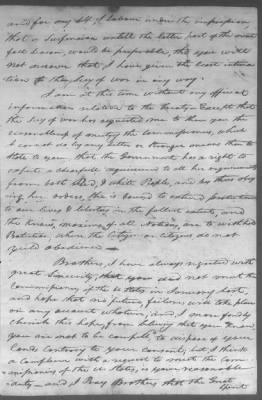 and for my self I labour under the impression
that a suspension untill the latter part of the next
fall season, would be preferable, this you will
not answer that I have given the least intima
tion to the Secy of war in any way.
I am at this time without any official
information relative to the Treaty Except that
the Secy of war has requested me to them upon the
reasonableness of meeting the Commissioners, which
I cannot do by any better or stronger means than to
State to you that the Government has a right to
expect a cheerfull to all her arguments
from both Red & white People, and by thus obey
ing her orders, she is bound to extend protection
to our lives & liberties in the fullest extent, and
the known maxims of all Nations, are to withhold
Protection when the Citizen or citizens do not
yield obedience
Brothers, I have always regretted with
great Sincerity, that you did not meet the
Commissioners of the U States in January last,
and hope that no future failure will take place
on any account whatever; and I more fondly
cherish this hope, from knowing that your
you are not to be compelled to dispose of your
Lands Contrary to your consent, but I think
a compliance with a request to meet the Comm
issioners of the U States, is your reasonable
duty — and I Pray Brothers that the Great
Spirit